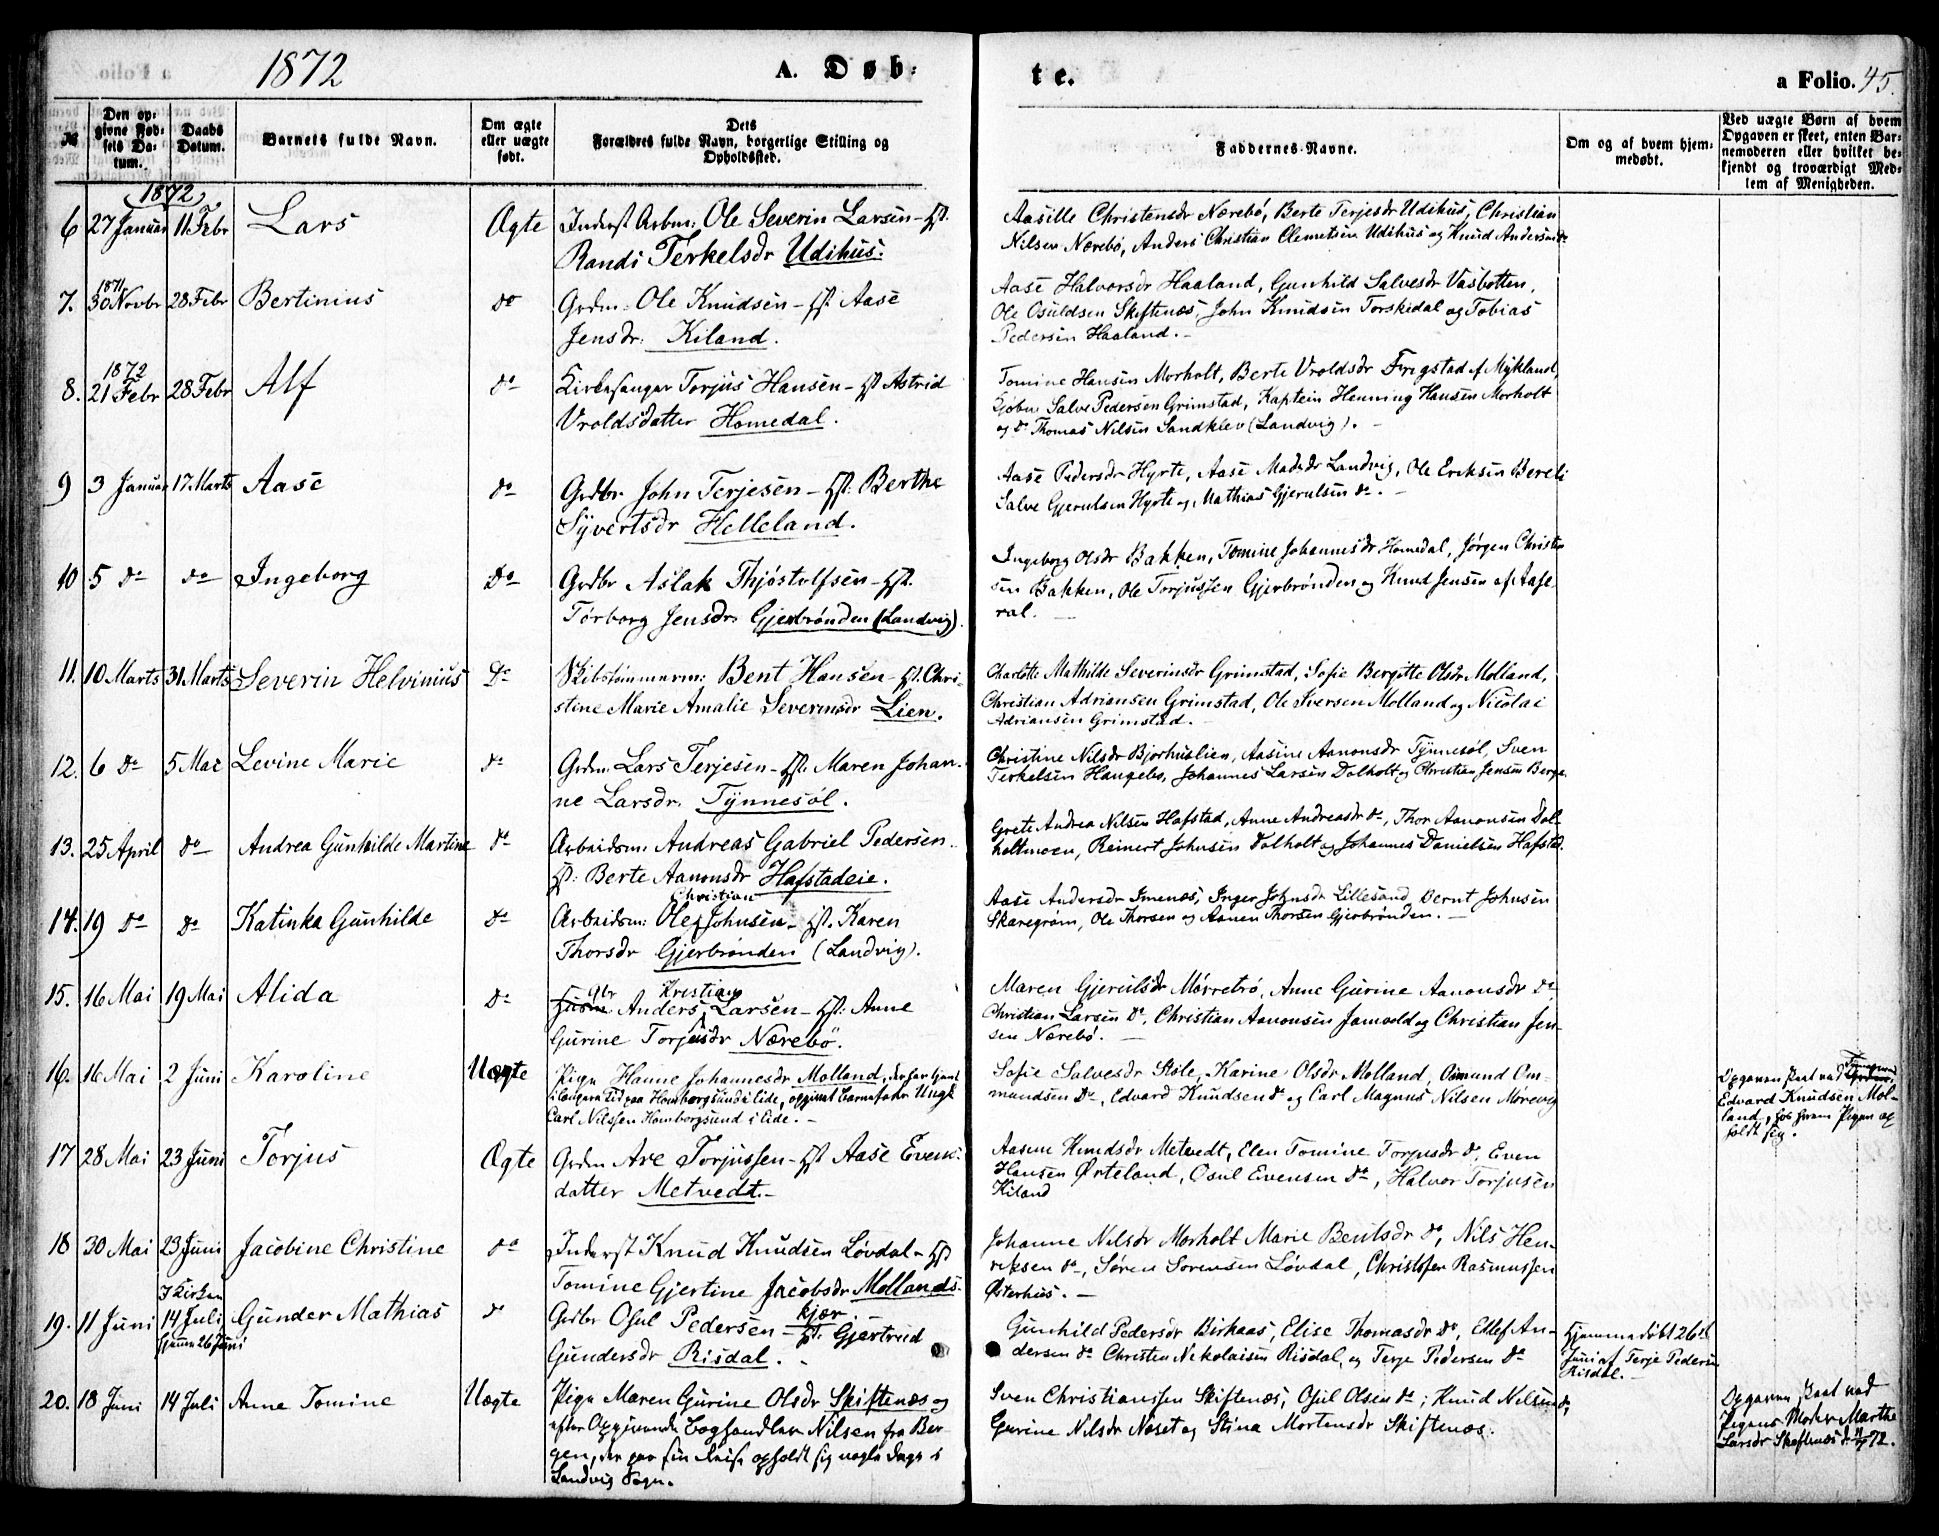 1872
A. Døb-
te.
a Folio. 45.
№
Den opgivne Fødsels Datum.
Daabs Datum.
Barnets fulde Navn.
Om ægte eller uægte født.
Dets Forældres fulde Navn, borgerlige Stilling og Opholdssted.
Faddernes Navne.
Om og af hvem hjemmedøbt.
Ved uægte Børn af hvem Opgaven er skeet, enten Barnemoderen eller hvilket bekjendt og troværdigt Medlem af Menigheden.
1872
6 27 Januar 11 Febr Lars Ægte Inderst Arbm: Ole Severin Larsen – Hst.
Randi Terkelsdr Udihus.
Aasille Christensdr Nærebö, Berte Terjesdr Udihus, Christian
Nilsen Nærebö, Anders Christian Clemetsen Udihus og Knud Andersen do
1871
7. 30 Novbr 28 Febr Bertinius do Grdm: Ole Knudsen – Hst. Aase
Jensdr: Kiland.
Aase Halvorsdr Haaland, Gunhild Salvesdr Vasbotten,
Ole Osuldsen Skiftenæs, John Knudsen Torskedal og Tobias
Pedersen Haaland. –
1872
8. 21 Febr 28 Febr Alf do Kirkesanger Torjus Hansen – Hst Astrid
Vroldsdatter Homedal.
Tomine Hansen Morholt, Berte Vroldsdr Frigstad af Mykland,
Kjöbm Salve Pedersen Grimstad, Kaptein Henning Hansen Morholt
og do Thomas Nilsen Sandklev (Landvig). –
9 3 Januar 17 Marts Aase do Grdbr John Terjesen – Hst: Berthe
Syvertsdr Helleland.
Aase Pedersdr Hyrte, Aase Madsdr Landvig, Ole Eriksen Bereli
Salve Gjerulsen Hyrte og Mathias Gjerulsen do. –
10 5 do do Ingeborg Do Grdbr Aslak Thjöstolfsen – Hst.
Törborg Jensdr Gjerbrönden (Landvig).
Ingeborg Olsdr Bakken, Tomine Johannesdr Homedal, Jörgen Christen
sen Bakken, Ole Torjussen Gjerbrönden og Knud Jensen af Aase
ral. –
11. 10 Marts 31 Marts Severin Helvinius Do Skibstömmerm: Bent Hansen – Hst. Chri-
stine Marie Amalie Severinsdr Lien.
Charlotte Mathilde Severinsdr Grimstad, Sofie Bergitte Olsdr Molland,
Christian Adriansen Grimstad, Ole Iversen Molland og Nicolai
Adriansen Grimstad. –
12. 6 do 5 Mai Levine Marie do Grdm. Lars Terjesen – Hst. Maren Johan-
ne Larsdr. Tynnesöl.
Christine Nilsdr Bjorhuslien, Aasine Aanonsdr Tynnesöl, Sven
Terkelsen Haugebo, Johannes Larsen Dolholt og Christian Jensen Berge
13. 25 April do Andrea Gunhilde Martine do Arbeidsm: Andreas Gabriel Pedersen
Hst: Berte Aanonsdr Hafstadeie.
Grete Andrea Nilsen Hafstad, Anne Andreasdr do, Thor Aanonsen Dol-
holtmoen, Reinert Johnsen Dolholt og Johannes Danielsen Hafstad.
14. 19 do do Katinka Gunhilde do Arbeidsm: Ole Christian Johnsen – Hst. Karen
Thorsdr Gjerbrönden (Landvig).
Aase Andersdr Imenæs, Inger Johnsdr Lillesand, Bernt Johnsen
Skaregröm, Ole Thorsen og Aanen Thorsen Gjerbrönden. –
15. 16 Mai 19 Mai Alida do Gbr Anders Kristian Larsen – Hst: Anne
Gurine Torjusdr Nærebö.
Maren Gjerulsdr Mörretrö, Anne Gurine Aanonsdr do
Christian Larsen do, Christian Aanonsen Jamvold og Christian Jen-
sen Nærebö. –
16. 16 Mai 2 Juni Karoline Uægte Pige Hanne Johannesdr Molland, der har tjent
i længere Tid paa Homborgsund i Eide, opgivet Barnefader Ungk
Carl Nilssen Homborgsund i Eide. –
Sofie Salvesdr Stöle, Karine Olsdr Molland, Omund Om-
mundsen do, Edvard Knudsen do og Carl Magnus Nilsen Morevig
Opgaven skeet ved
Edvard Knudsen Mol-
land, hos hvem Pigen op
holdt sig.
17 28 Mai 23 Juni Torjus Ægte Grdm Are Torjussen – Hst Aase Evens-
datter Metvedt. –
Aasene Knudsdr Metvedt, Elen Tomine Torjusdr do, Even
Hansen Örteland, Osul Evensen do, Halvor Torjusen
Kiland
18 30 Mai 23 Juni Jacobine Christine do Inderst Knud Knudsen Lövdal – Hst
Tomine Gjertine Jacobsdr Mollands-
kjær
Johanne Nilsdr Morholt Marie Bentsdr do, Nils Hen-
riksen do, Sören Sörensen Lövdal, Christoffer Rasmussen
Österhus. –
19. 11 Juni I Kirken 14 Juli Hjemme 26 Juni Gunder Mathias do Grdbr Osul Pedersen – Hst. Gjertrud
Gundersdr Risdal. –
Gunhild Pedersdr Birkaas, Elise Thomasdr do, Edlef An-
dersen do Christen Nikolaisen Risdal, og Terje Pedersen do
Hjemmedöbt 26de
Juni af Terje Pedersen
Risdal. –
20. 18 Juni 14 Juli Anne Tomine Uægte Pige Maren Gurine Olsdr Skiftenæs og
efter Opgivende Boghandler Nilsen fra Ber-
gen, der paa sin Reise opholdt sig nogle Dage i
Landvig Sogn.
Sven Christianssen Skiftenæs, Osul Olsen do; Knud Nilsen do,
Gurine Nilsdr Næset og Stina Mortensdr Skiftenæs.
Opgaven skeet ved
Pigens Moder Marthe
Larsdr Skiftenæs d. 72.